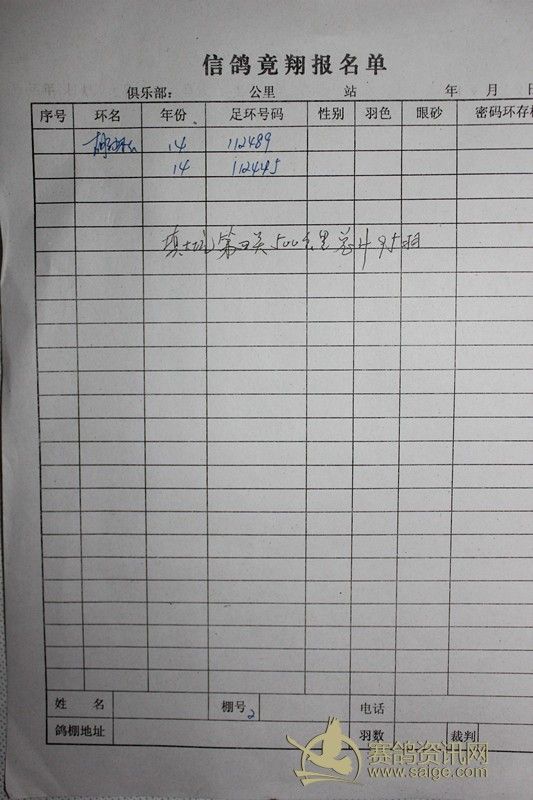 信鸽竟翔报名单
俱乐部： 公里 站 年 月 日
序号 环名 年份 足环号码 性别 羽色 眼砂 密码环存根
14 112489
14 112445
第四关500公里总计95羽
姓 名 棚号 2 电话
鸽棚地址 羽数 裁判
赛鸽资讯网
www.saige.com